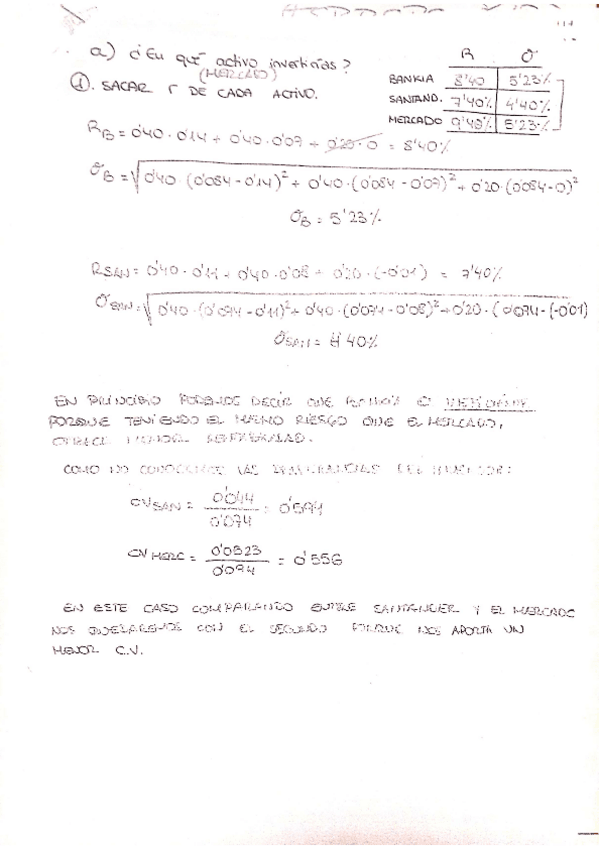 a) ¿En qué activo invertirías?
(MERCADO)
① SACAR r DE CADA ACTIVO.
R σ
BANKIA 8'40 5'23%
SANTAND. 7'40% 4'40%
MERCADO 9'40% 5'23%
R_B = 0'40 · 0'14 + 0'40 · 0'07 + 0'20 · 0 = 8'40%
σ_B = √0'40 (0'084 - 0'14)² + 0'40 · (0'084 - 0'07)² + 0'20 · (0'084 - 0)²
σ_B = 5'23%
R_SAN = 0'40 · 0'11 + 0'40 · 0'08 + 0'20 · (-0'01) = 7'40%
σ_SAN = √0'40 · (0'074 - 0'11)² + 0'40 · (0'074 - 0'08)² + 0'20 · (0'074 - (-0'01)
σ_SAN = 4'40%
EN PRINCIPIO PODEMOS DECIR QUE
PORQUE TENIENDO EL MISMO RIESGO QUE EL MERCADO,
OFRECE MENOR RENTABILIDAD.
COMO NO CONOCEMOS LAS PREFERENCIAS DEL INVERSOR:
CV_SAN = 0'044 / 0'074 = 0'594
CV_MERC = 0'0523 / 0'094 = 0'556
EN ESTE CASO COMPARANDO ENTRE SANTANDER Y EL MERCADO
NOS QUEDAREMOS CON EL SEGUNDO PORQUE NOS APORTA UN
MENOR C.V.